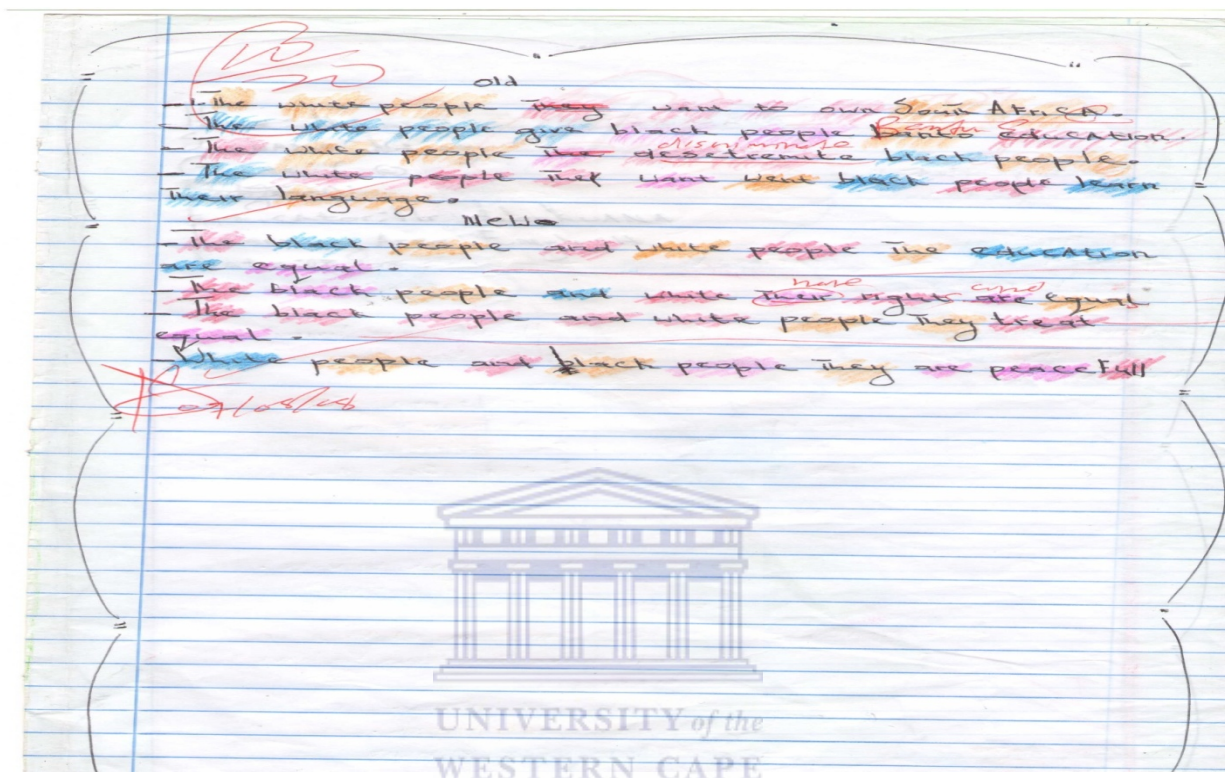 Old
- The white people They want to own South Africa.
- The white people give black people education.
discriminate
- The white people The desetremite black people.
- The white people They want want black people learn
Their language.
New
- The black people and white people The education
are equal.
have and
- The black people and white Their right are equal
- The black people and white people They treat
equal.
- White people and black people They are peace full
UNIVERSITY of the
WESTERN CAPE